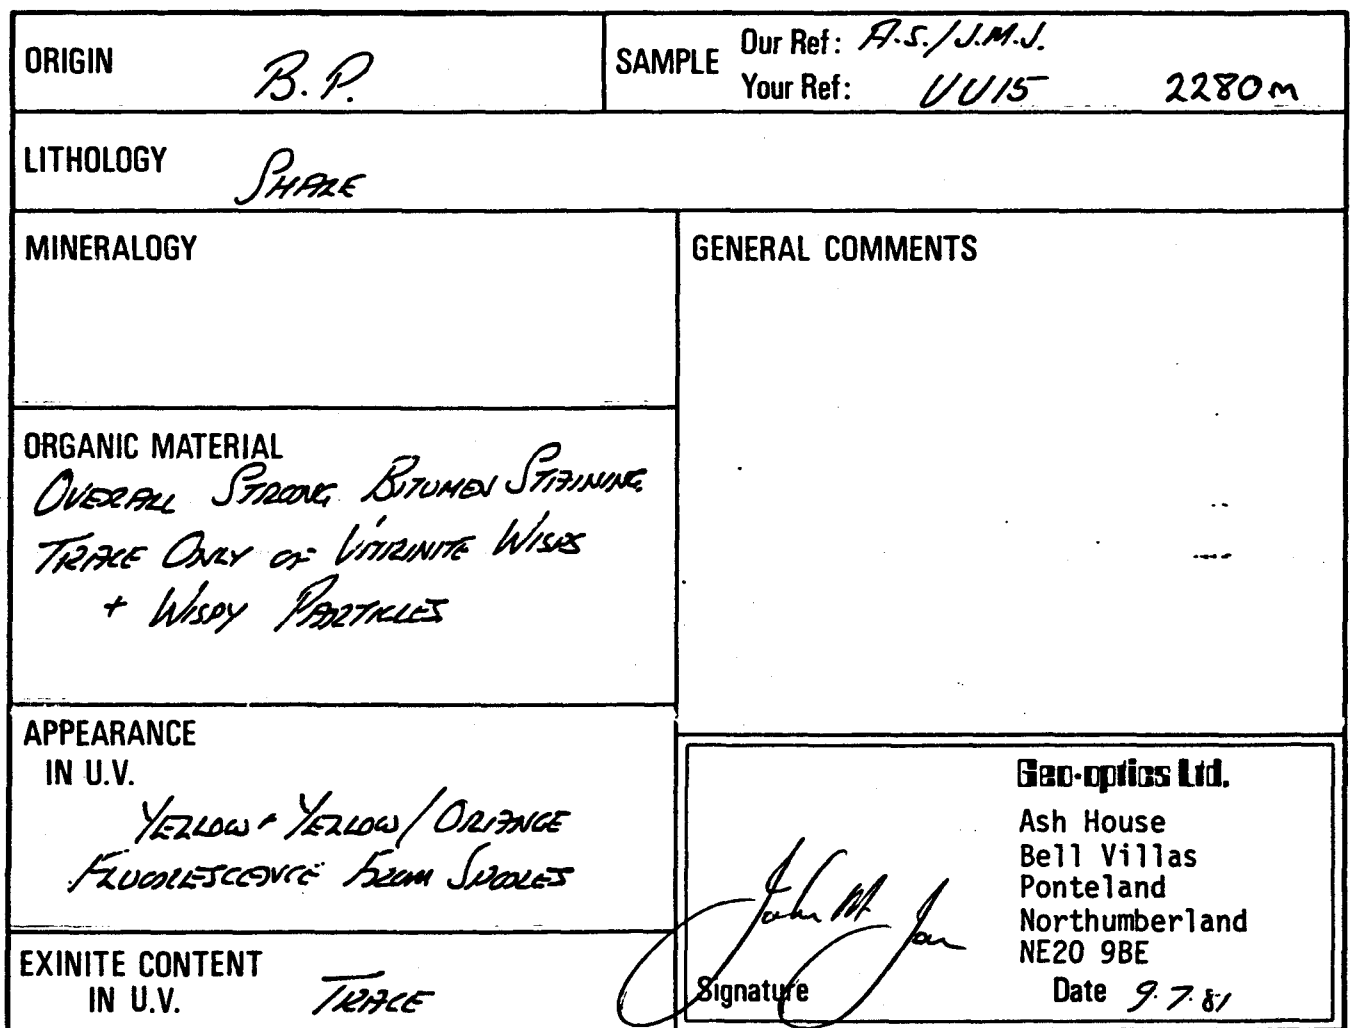 ORIGIN B.P.
SAMPLE Our Ref: A.S./J.M.J.
Your Ref: UU15 2280m
LITHOLOGY SHALE
MINERALOGY
GENERAL COMMENTS
ORGANIC MATERIAL
OVERALL STRONG BITUMEN STAINING.
TRACE ONLY OF VITRINITE WISPS
+ WISPY PARTICLES
APPEARANCE
IN U.V.
YELLOW + YELLOW/ORANGE
FLUORESCENCE FROM SPORES
EXINITE CONTENT
IN U.V. TRACE
Geo-optics Ltd.
Ash House
Bell Villas
Ponteland
Northumberland
NE20 9BE
John M.
Signature
Date 9.7.81